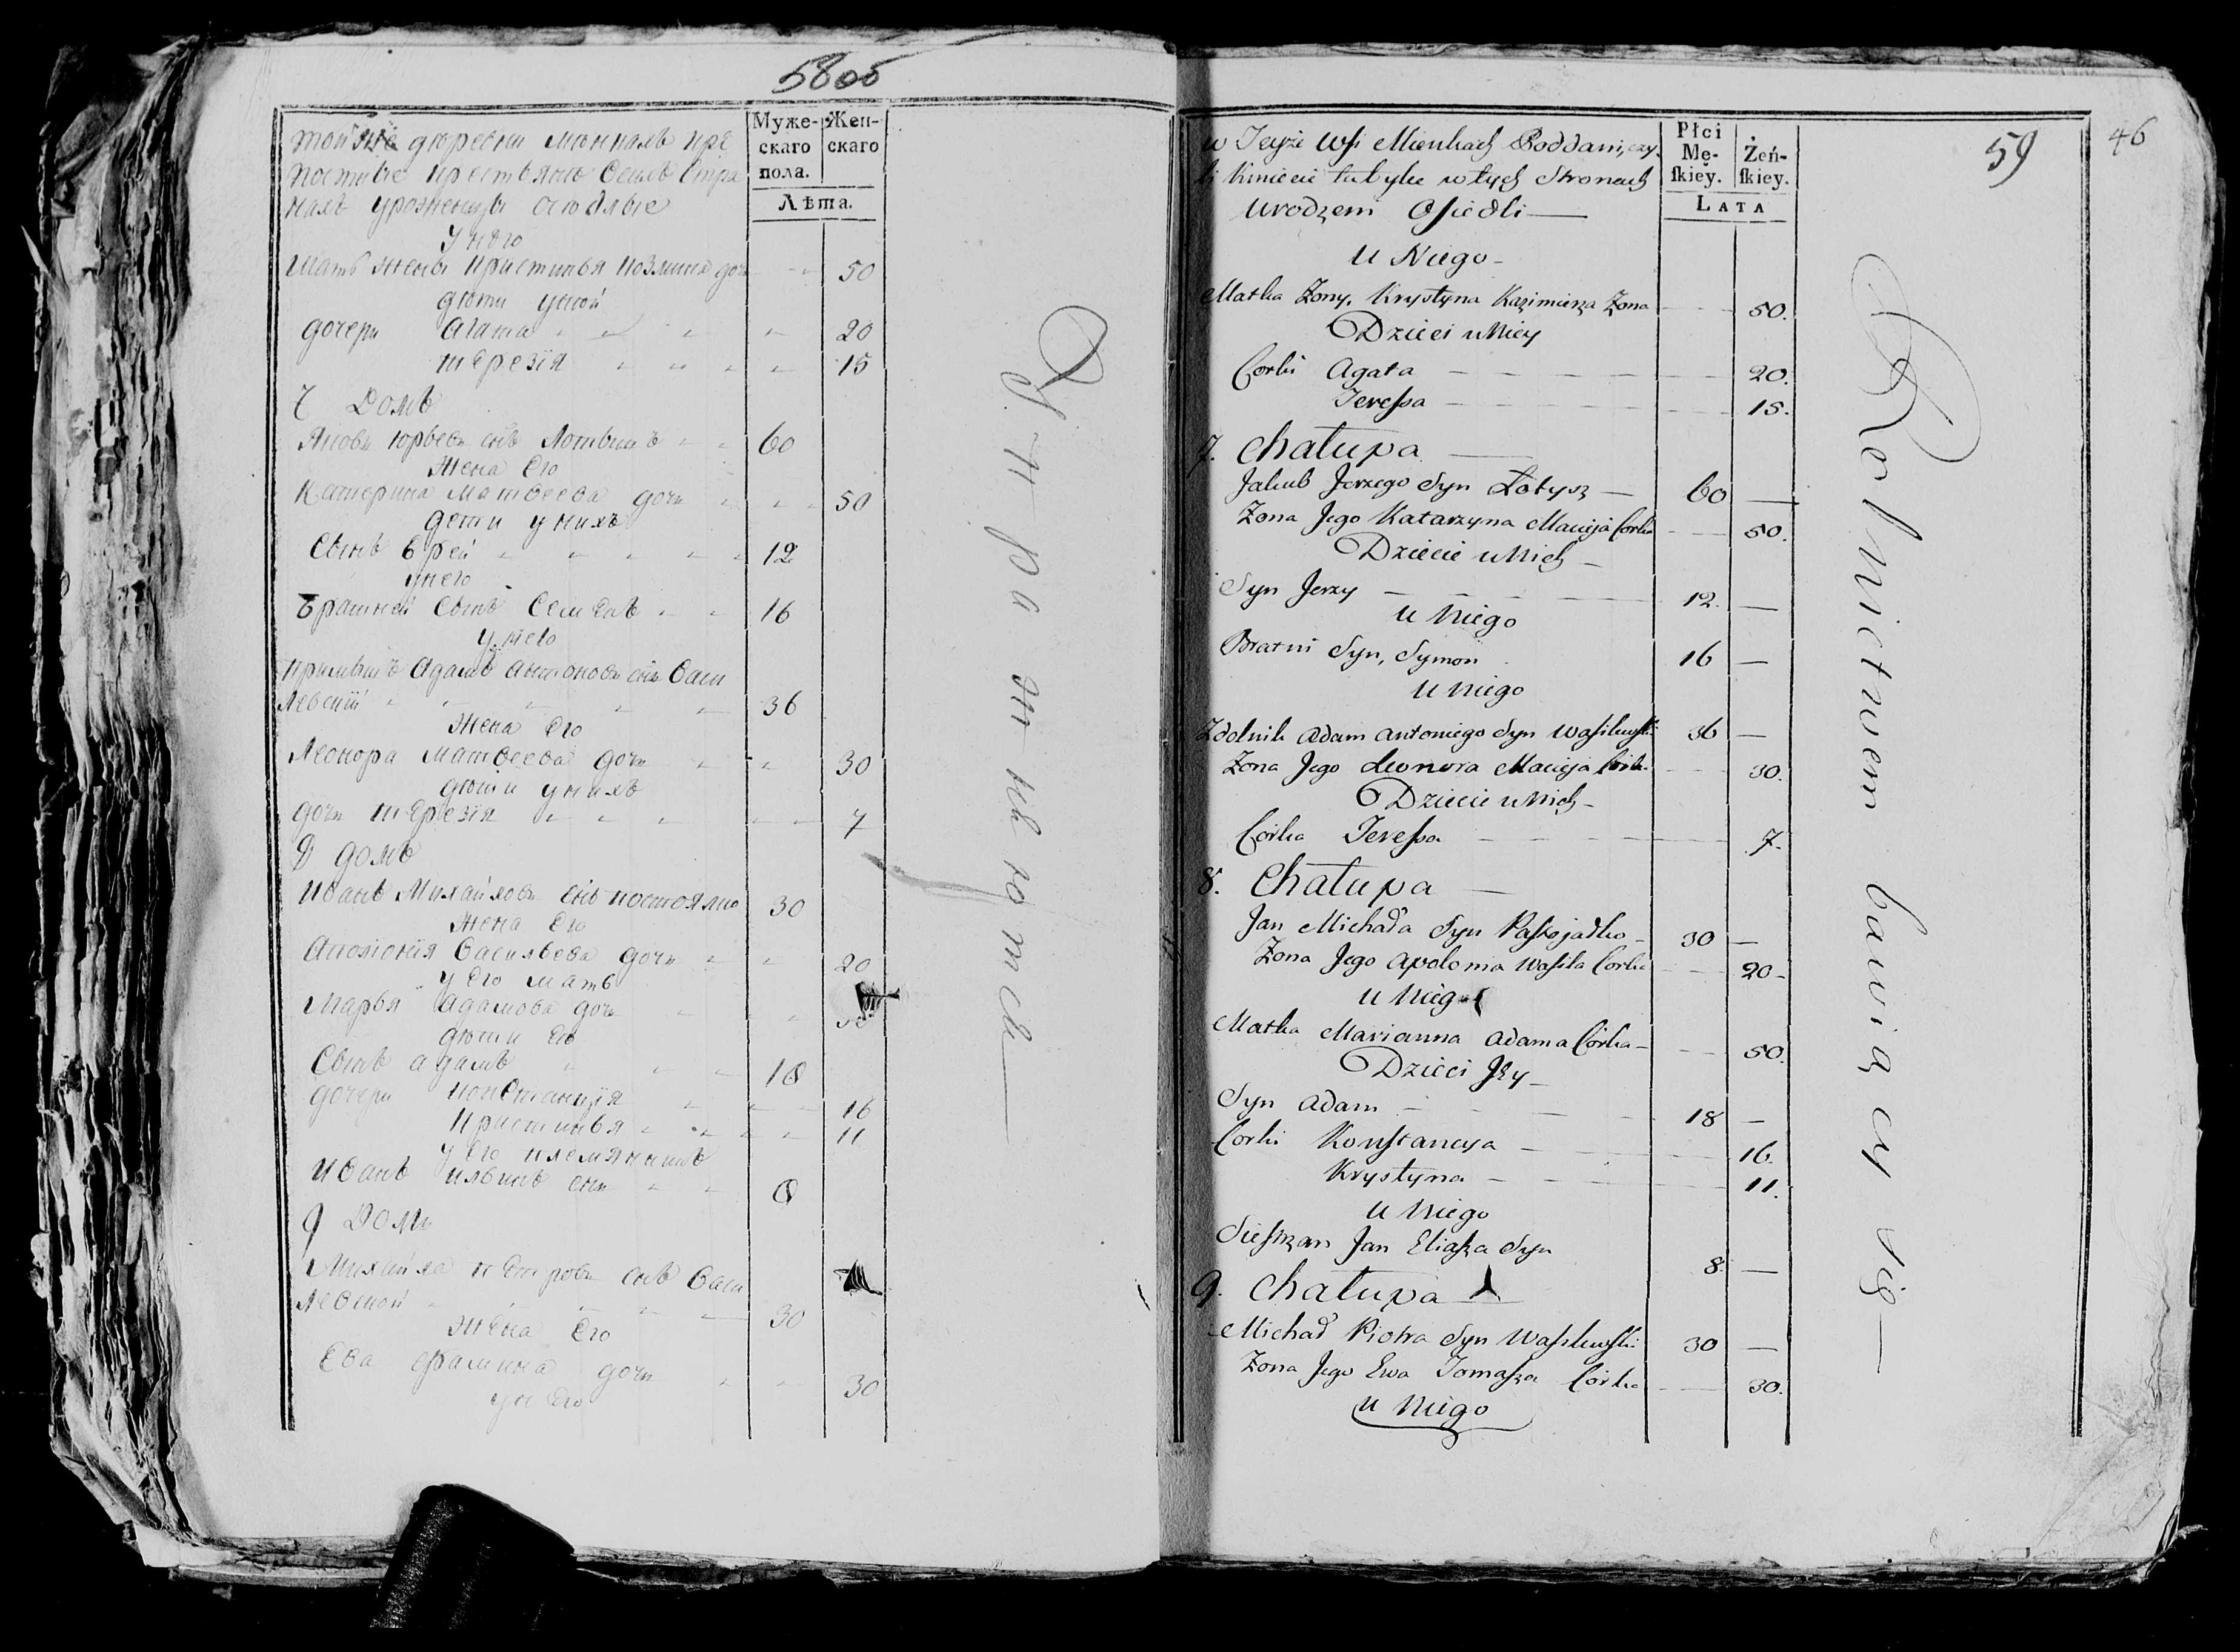 58об
Муже-
скаго
пола.
Жен-
скаго
Лѣта.
той же деревни кре
постные крестьяне всихъ стра
нахъ уроженцы оселые
у него
мать жены кристинья дочь 50
дети у ней
дочери агата 20
терезія 15
7 Домъ
Яковъ юрьевъ снъ лотышъ 60
жена его
катерина матвеева дочь 50
дети у нихъ
Сынъ юрей 12
у него
братней сынъ семенъ 16
у него
примыкъ адамъ антоновъ снъ васи
левскій 36
жена его
леонора матвеева дочь 30
дети у нихъ
дочь терезія 7
8 домъ
иванъ михайловъ снъ 30
жена его
аполонія васильева дочь 20
у его мать
марья адамова дочь 50
дети ее
Сынъ адамъ 18
дочери констанція 16
кристинья 11
у его племянникъ
иванъ ильинъ снъ 8
9 домъ
михайла петровъ снъ васи
левской 30
жена его
ева фамина дочь 30
у него
46
59
Płci
Mę-
ſkiey.
Żeń-
ſkiey.
LATA
w Teyże Wsi Mienkach Poddani, czy
li kmiecie tubylce w tych Stronach
urodzeni Osiedli —
u Niego —
Matka Żony, Krystyna Kazimierza Żona 50.
Dzieci u Niey
Corki Agata 20.
Teressa 15.
7. Chałupa —
Jakub Jerzego Syn Łotysz — 60 —
Żona Jego Katarzyna Macieja Corka 50.
Dziecie u Nich —
Syn Jerzy 12. —
u Niego
Bratni Syn, Symon 16 —
u niego
Zdolnik Adam Antoniego Syn Wasilewski 36 —
Żona Jego Leonora Macieja Corka 30.
Dziecie u Nich —
Córka Teressa 7.
8. Chałupa —
Jan Michała Syn Paskojadko 30 —
Żona Jego Apolonia Wasila Corka 20 —
u Niego
Matka Marianna Adama Córka — 50.
Dzieci Jey —
Syn Adam 18 —
Corki Konstancya 16.
Krystyna 11.
u Niego
Siestrzan Jan Eliasza Syn 8. —
9. Chałupa —
Michał Piotra Syn Wasilewski 30 —
Żona Jego Ewa Tomasza Córka 30.
u Niego
Rolnictwem bawiący się —